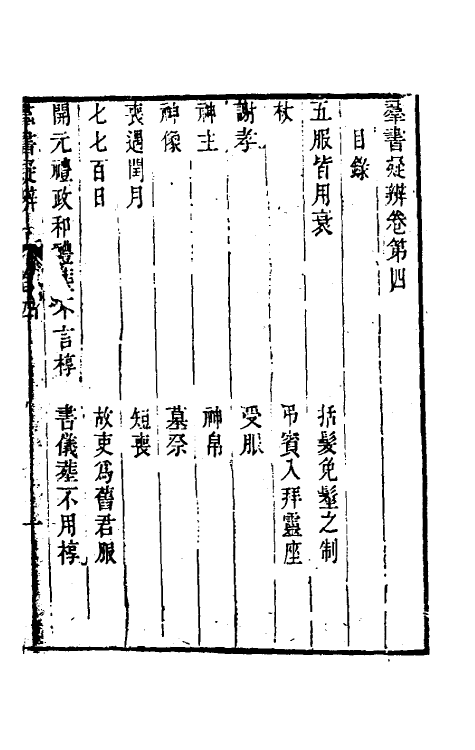 羣書疑辨卷第四
目錄
五服皆用衰　括髮免髽之制
杖　弔賓入拜靈座
謝孝　受服
神主　神帛
神像　墓祭
喪遇閏月　短喪
七七百日　故吏爲舊君服
開元禮政和禮喪不言椁　書儀葬不用椁
羣書疑辨